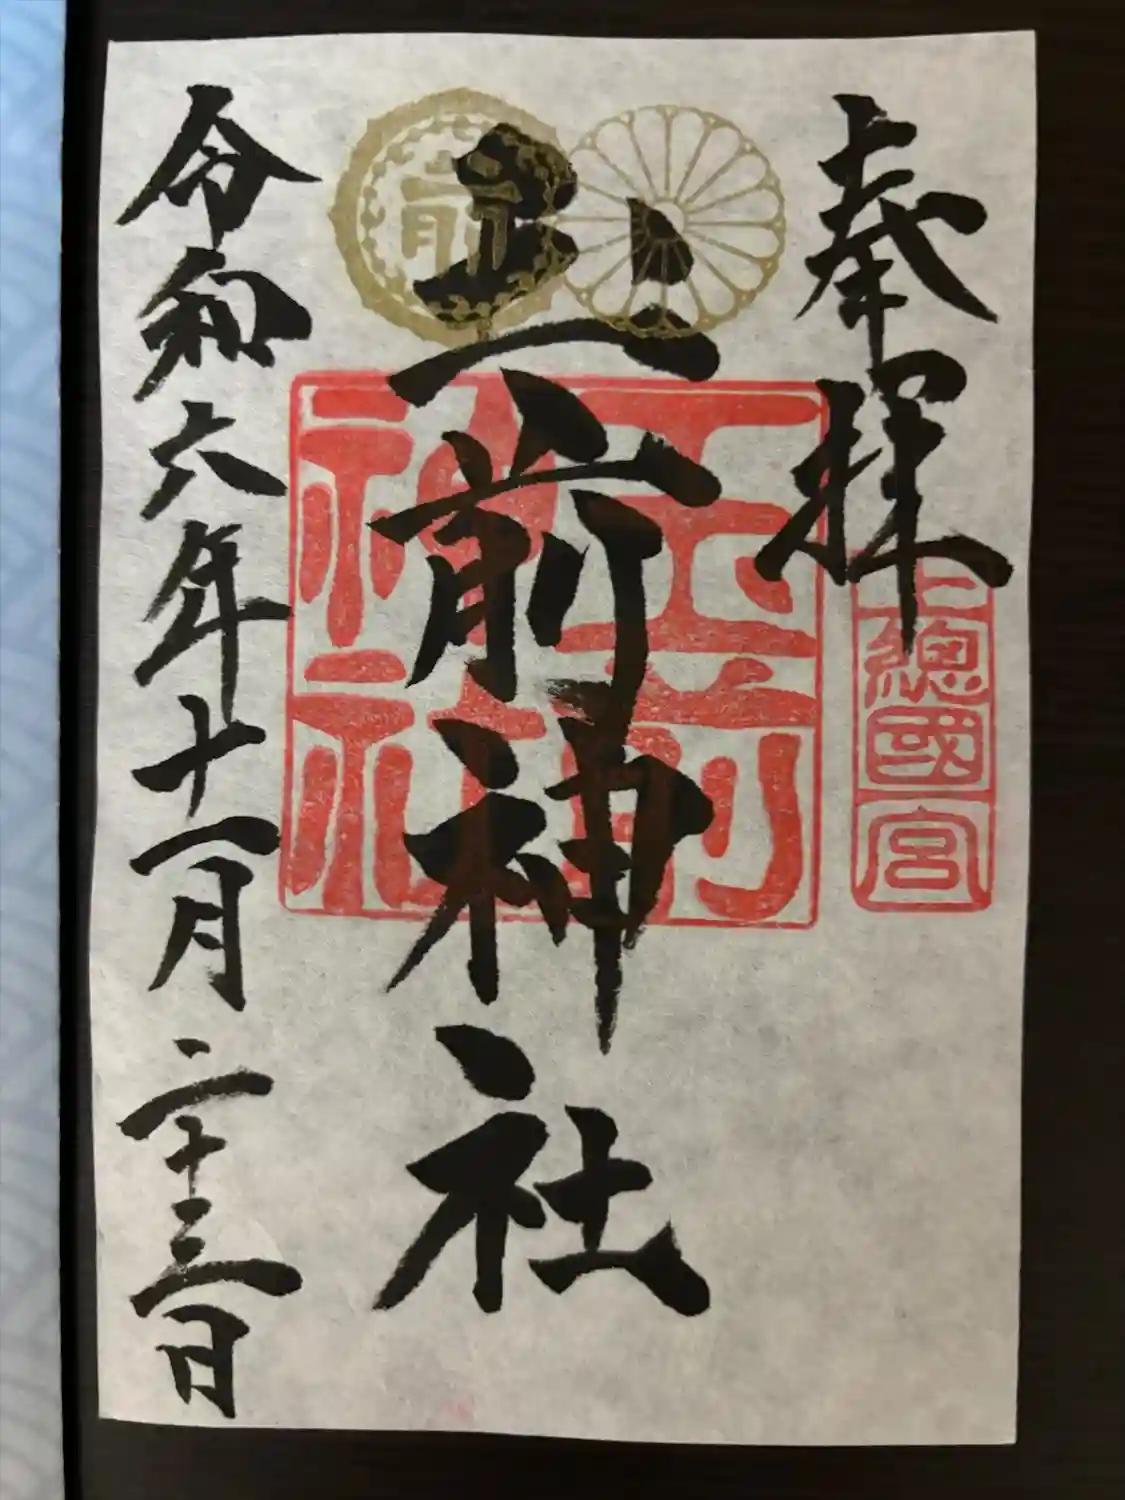 奉拝
上總國一宮
玉前神社
前
玉前
神社
令和六年十一月二十三日